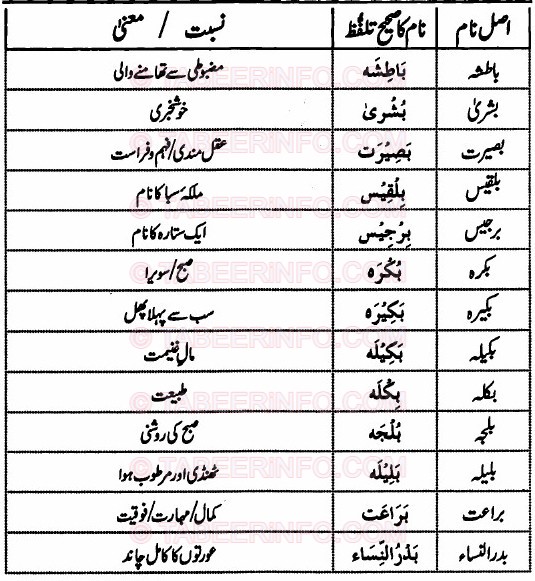 اصل نام | نام کا صحیح تلفُّظ | نسبت / معنیٰ
باطشہ | بَاطِشَه | مضبوطی سے تھامنے والی
بشریٰ | بُشْریٰ | خوشخبری
بصیرت | بَصِیْرَت | عقل مندی/فہم و فراست
بلقیس | بِلْقِیْس | ملکہ سبا کا نام
برجیس | بِرْجِیْس | ایک ستارہ کا نام
بکرہ | بُکْرَه | صبح/سویرا
بکیرہ | بَکِیْرَه | سب سے پہلا پھل
بکیلہ | بَکِیْلَه | مالِ غنیمت
بکلہ | بِکْلَه | طبیعت
بلجہ | بُلْجَه | صبح کی روشنی
بلیلہ | بَلِیْلَه | ٹھنڈی اور مرطوب ہوا
براعت | بَرَاعَت | کمال/مہارت/فوقیت
بدرالنساء | بَدْرُالنِّسَاء | عورتوں کا کامل چاند
© TABEERINFO.COM